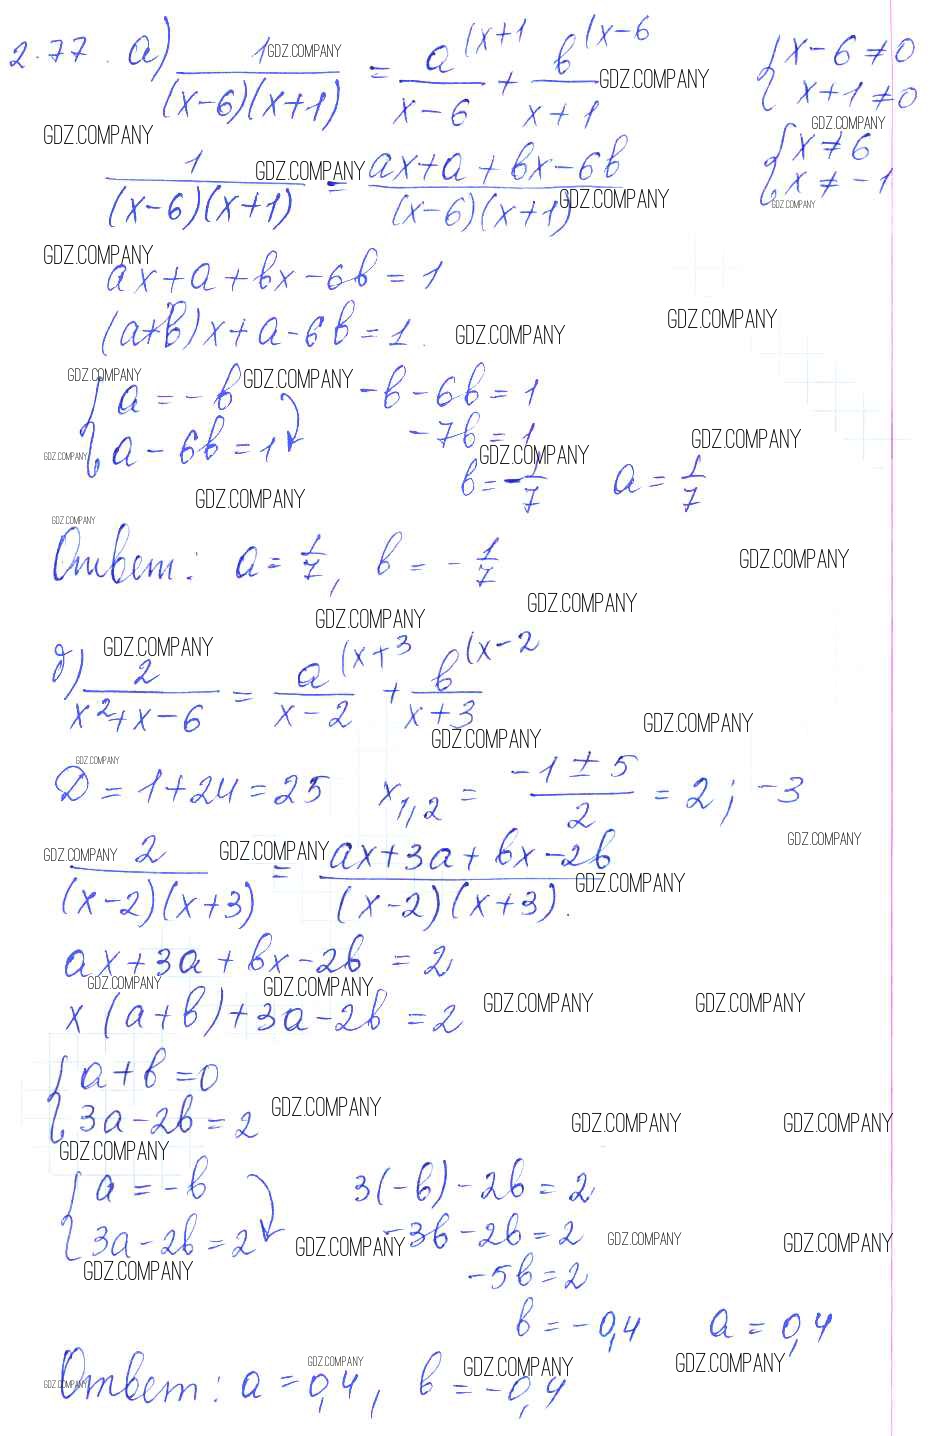 2.77. а) 1/((x-6)(x+1)) = a^(x+1/(x-6) + b^(x-6/(x+1) { x-6≠0 x+1≠0
1/((x-6)(x+1)) = (ax+a+bx-6b)/((x-6)(x+1)) { x≠6 x≠-1
ax+a+bx-6b=1
(a+b)x+a-6b=1.
{ a=-b -b-6b=1
a-6b=1 -7b=1
b=-1/7 a=1/7
Ответ: a=1/7, b=-1/7
б) 2/(x²+x-6) = a^(x+3/(x-2) + b^(x-2/(x+3)
D=1+24=25 x1,2 = (-1±5)/2 = 2; -3
2/((x-2)(x+3)) = (ax+3a+bx-2b)/((x-2)(x+3)).
ax+3a+bx-2b=2
x(a+b)+3a-2b=2
{ a+b=0
3a-2b=2
{ a=-b 3(-b)-2b=2
3a-2b=2 -3b-2b=2
-5b=2
b=-0,4 a=0,4
Ответ: a=0,4, b=-0,4
GDZ.COMPANY